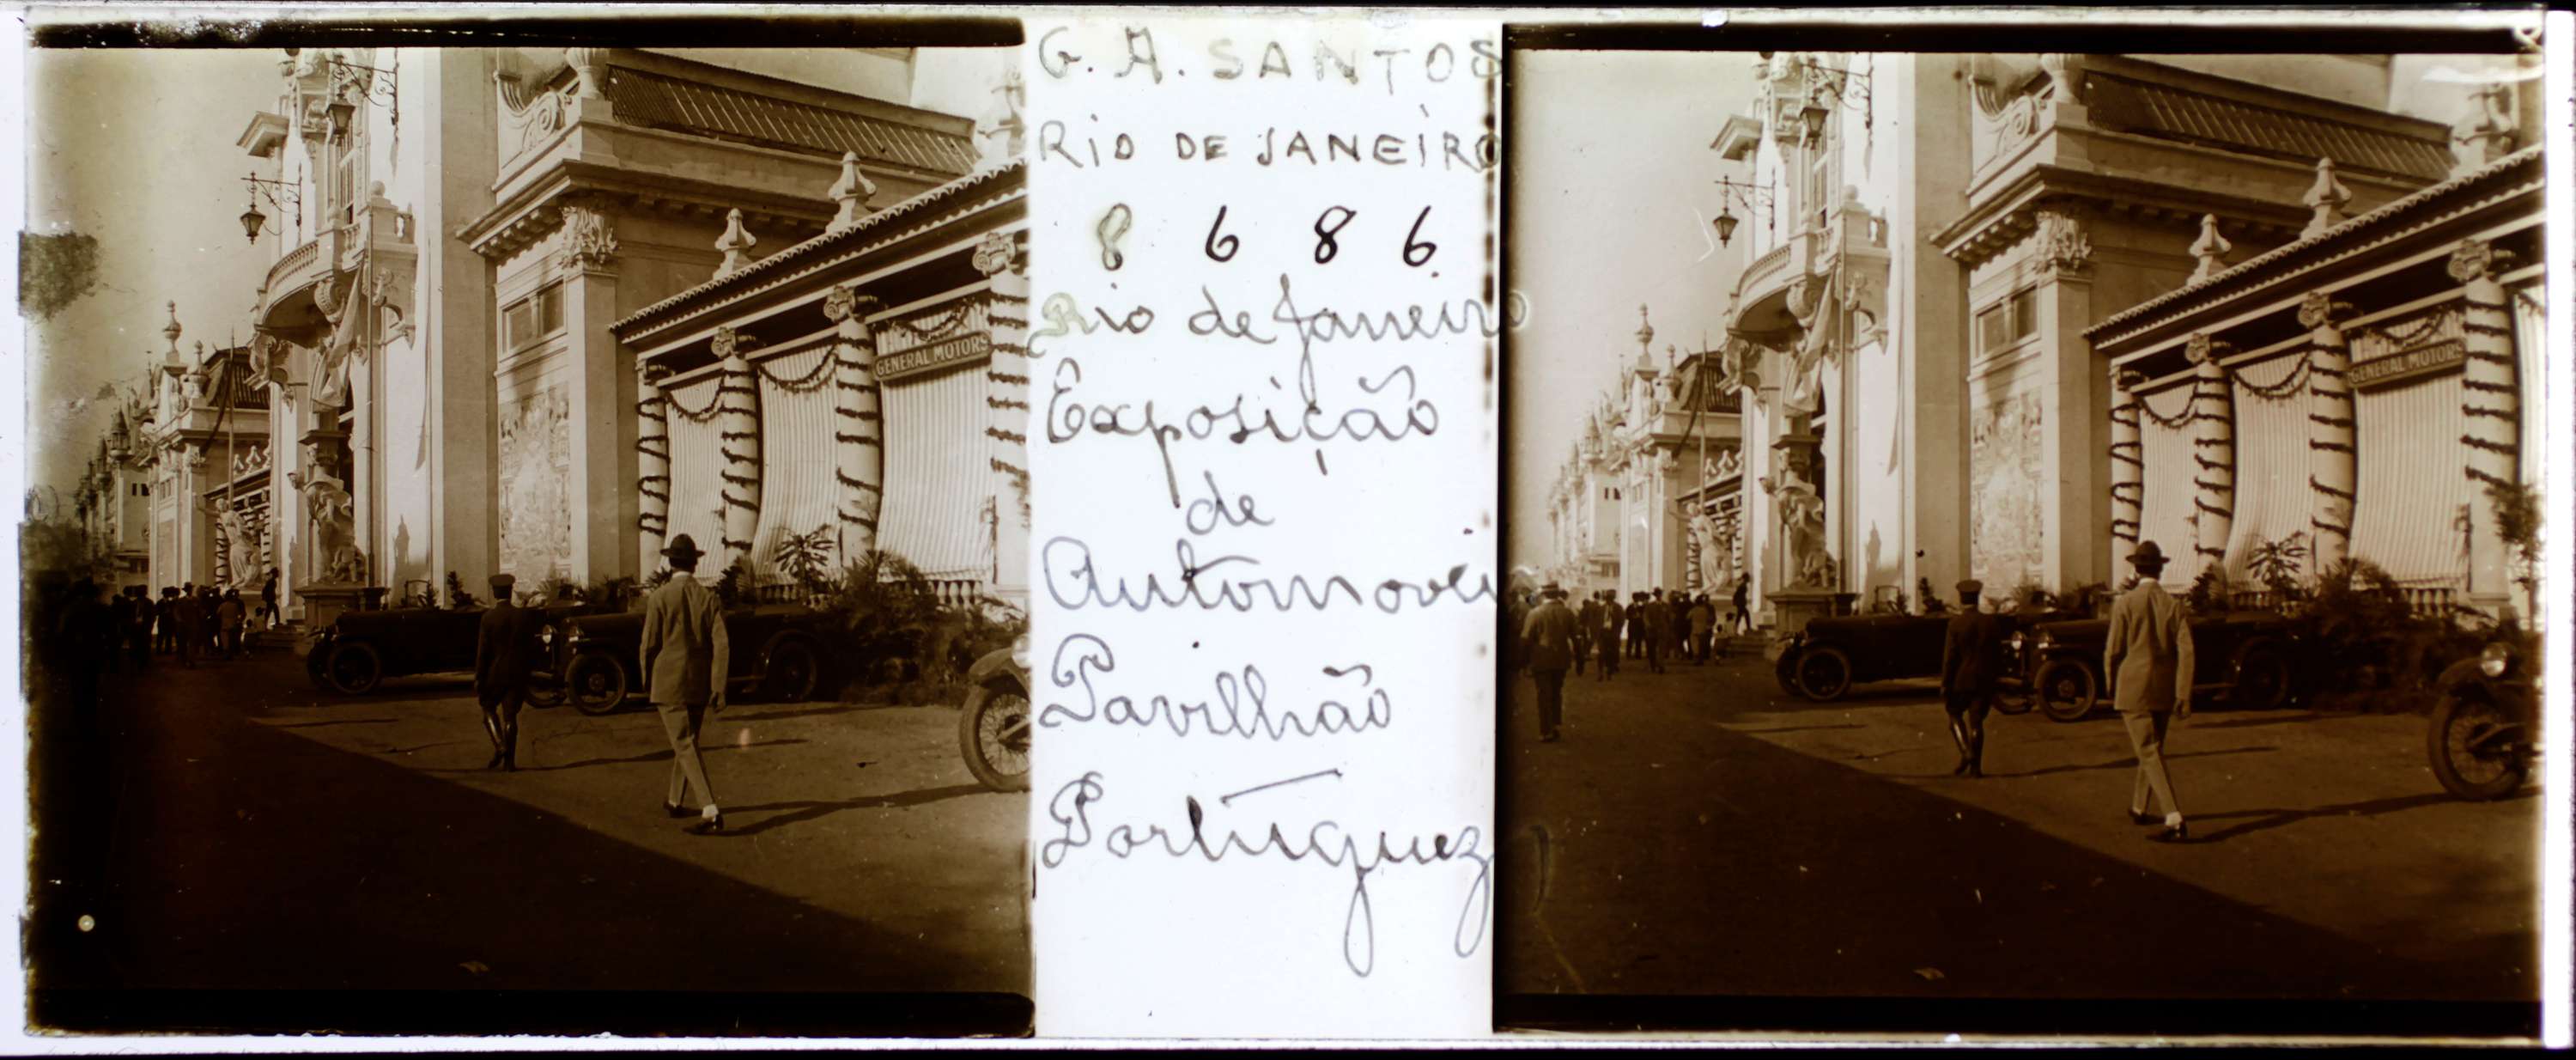 GENERAL MOTORS
G. A. SANTOS
RIO DE JANEIRO
8 6 8 6
Rio de Janeiro
Exposição
de
Automovei
Pavilhão
Portuguez
GENERAL MOTORS